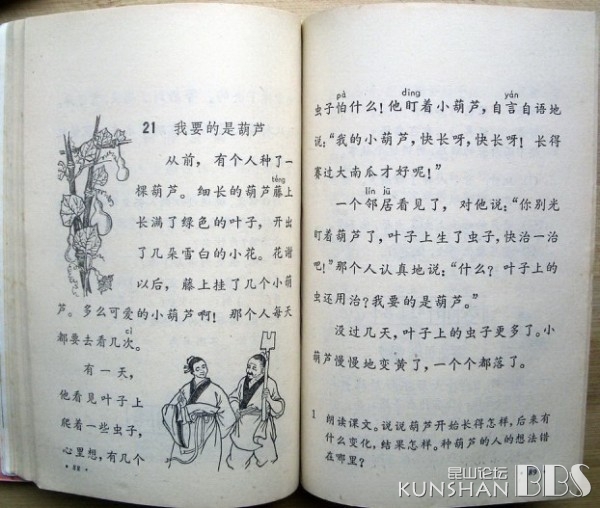 21 我要的是葫芦
从前，有个人种了一
téng
棵葫芦。细长的葫芦藤上
长满了绿色的叶子，开出
了几朵雪白的小花。花谢
以后，藤上挂了几个小葫
芦。多么可爱的小葫芦啊！那个人每天
cì
都要去看几次。
有一天，
他看见叶子上
爬着一些虫子，
心里想，有几个
· 88 ·
pà dīng yán
虫子怕什么！他盯着小葫芦，自言自语地
说：“我的小葫芦，快长呀，快长呀！长得
赛过大南瓜才好呢！”
lín jū
一个邻居看见了，对他说：“你别光
盯着葫芦了，叶子上生了虫子，快治一治
吧！”那个人认真地说：“什么？叶子上的
虫还用治？我要的是葫芦。”
没过几天，叶子上的虫子更多了。小
葫芦慢慢地变黄了，一个个都落了。
1 朗读课文。说说葫芦开始长得怎样，后来有
什么变化，结果怎样。种葫芦的人的想法错
在哪里？
昆山论坛
KUNSHAN BBS